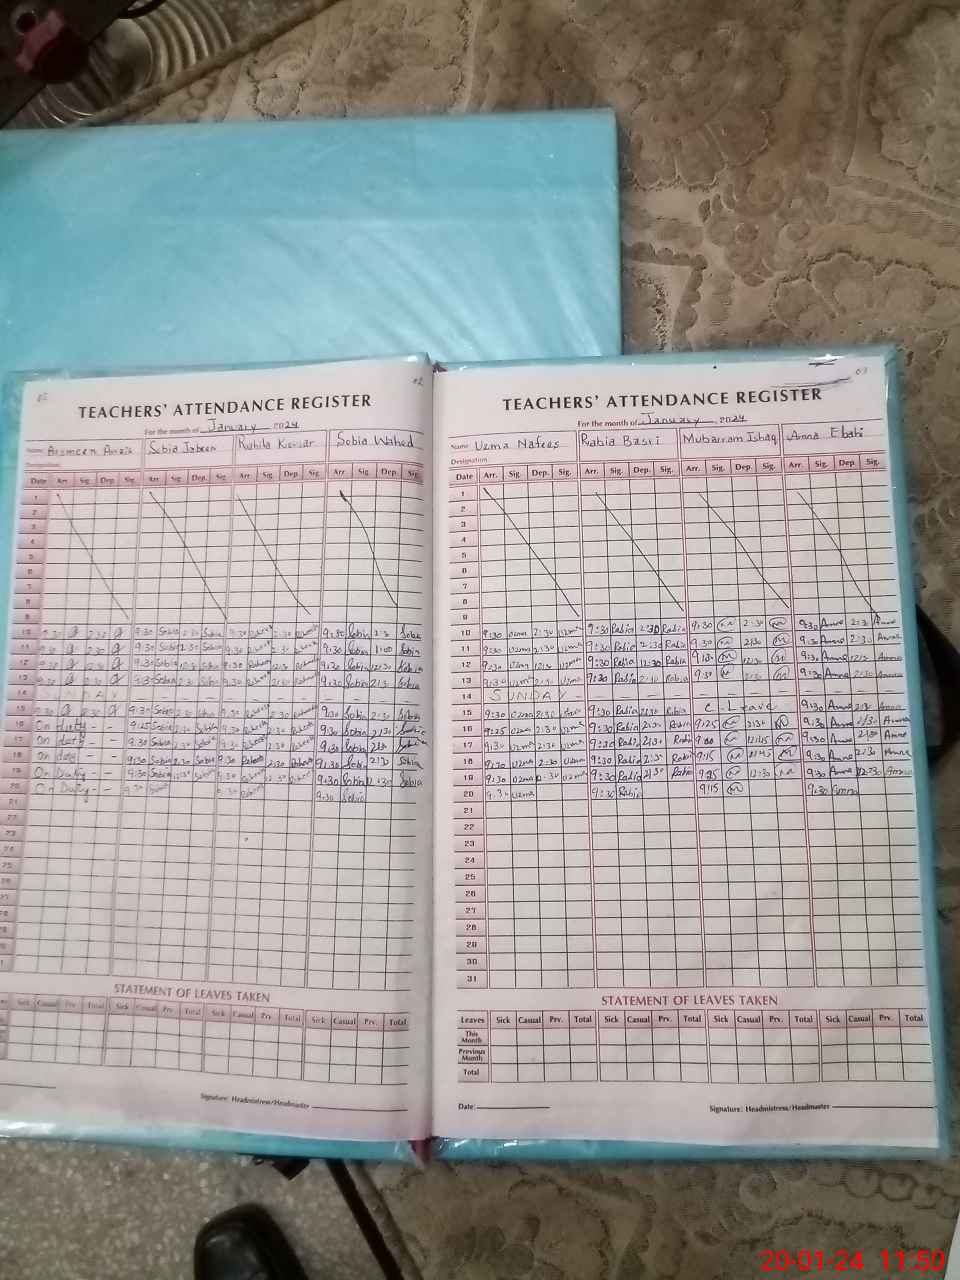 02
TEACHERS' ATTENDANCE REGISTER
For the month of January, 2024
Name Sobia Jabeen Rahila Kausar Sobia Waheed
Designation
Date Arr. Sig. Dep. Sig. Arr. Sig. Dep. Sig. Arr. Sig. Dep. Sig. Arr. Sig. Dep. Sig.
1
2
3
4
5
6
7
8
9
10 9:30 Sobia 2:30 Sobia 9:30 2:30 9:30 Sobia 2:30 Sobia
11 9:30 Sobia 2:30 Sobia 9:30 2:30 9:30 Sobia 1:00 Sobia
12 9:30 Sobia 12:30 Sobia 9:30 12:30 9:30 Sobia 12:30 Sobia
13 9:30 Sobia 2:30 Sobia 9:30 2:30 9:30 Sobia 2:30 Sobia
14 SUNDAY
15 9:30 Sobia 2:30 Sobia 9:30 2:30 9:30 Sobia 2:30 Sobia
16 On duty - - 9:25 Sobia 2:30 Sobia 9:30 2:30 9:30 Sobia 2:30 Sobia
17 On duty - - 9:30 Sobia 2:30 Sobia 9:30 2:30 9:30 Sobia
18 On duty - - 9:30 Sobia 2:30 Sobia 9:30 2:30 9:30 Sobia 2:30 Sobia
19 On Duty - - 9:30 Sobia 12:30 Sobia 9:30 12:30 9:30 Sobia 12:30 Sobia
20 On Duty - - 9:30 Sobia 9:30 9:30 Sobia
21
22
23
24
25
26
27
28
29
30
STATEMENT OF LEAVES TAKEN
Sick Casual Prv. Total Sick Casual Prv. Total Sick Casual Prv. Total Sick Casual Prv. Total
Signature: Headmistress/Headmaster
03
TEACHERS' ATTENDANCE REGISTER
For the month of January, 2024
Name Uzma Nafees Rabia Basri Muharram Ishaq Amna Elahi
Designation
Date Arr. Sig. Dep. Sig. Arr. Sig. Dep. Sig. Arr. Sig. Dep. Sig. Arr. Sig. Dep. Sig.
1
2
3
4
5
6
7
8
9
10 9:30 Uzma 2:30 Uzma 9:30 Rabia 2:30 Rabia 9:30 2:30 9:30 Amna 2:30 Amna
11 9:30 Uzma 2:30 Uzma 9:30 Rabia 2:30 Rabia 9:30 2:30 9:30 Amna 2:30 Amna
12 9:30 Uzma 12:30 Uzma 9:30 Rabia 12:30 Rabia 9:30 12:30 9:30 Amna 12:30 Amna
13 9:30 Uzma 2:30 Uzma 9:30 Rabia 2:30 Rabia 9:30 2:30 9:30 Amna 2:30 Amna
14 SUNDAY - - -
15 9:30 Uzma 2:30 Uzma 9:30 Rabia 2:30 Rabia C - Leave 9:30 Amna 2:30 Amna
16 9:25 Uzma 2:30 Uzma 9:30 Rabia 2:30 Rabia 9:25 2:30 9:30 Amna 2:30 Amna
17 9:30 Uzma 2:30 Uzma 9:30 Rabia 2:30 Rabia 12:45 9:30 Amna 2:30 Amna
18 9:30 Uzma 2:30 Uzma 9:30 Rabia 2:30 Rabia 9:15 9:30 Amna 2:30 Amna
19 9:30 Uzma 12:30 Uzma 9:30 Rabia Rabia 9:25 12:30 9:30 Amna 12:30 Amna
20 9:30 Uzma 9:30 Rabia 9:15 9:30 Amna
21
22
23
24
25
26
27
28
29
30
31
STATEMENT OF LEAVES TAKEN
Leaves Sick Casual Prv. Total Sick Casual Prv. Total Sick Casual Prv. Total Sick Casual Prv. Total
This Month
Previous Month
Total
Date: Signature: Headmistress/Headmaster
20-01-24 11:50